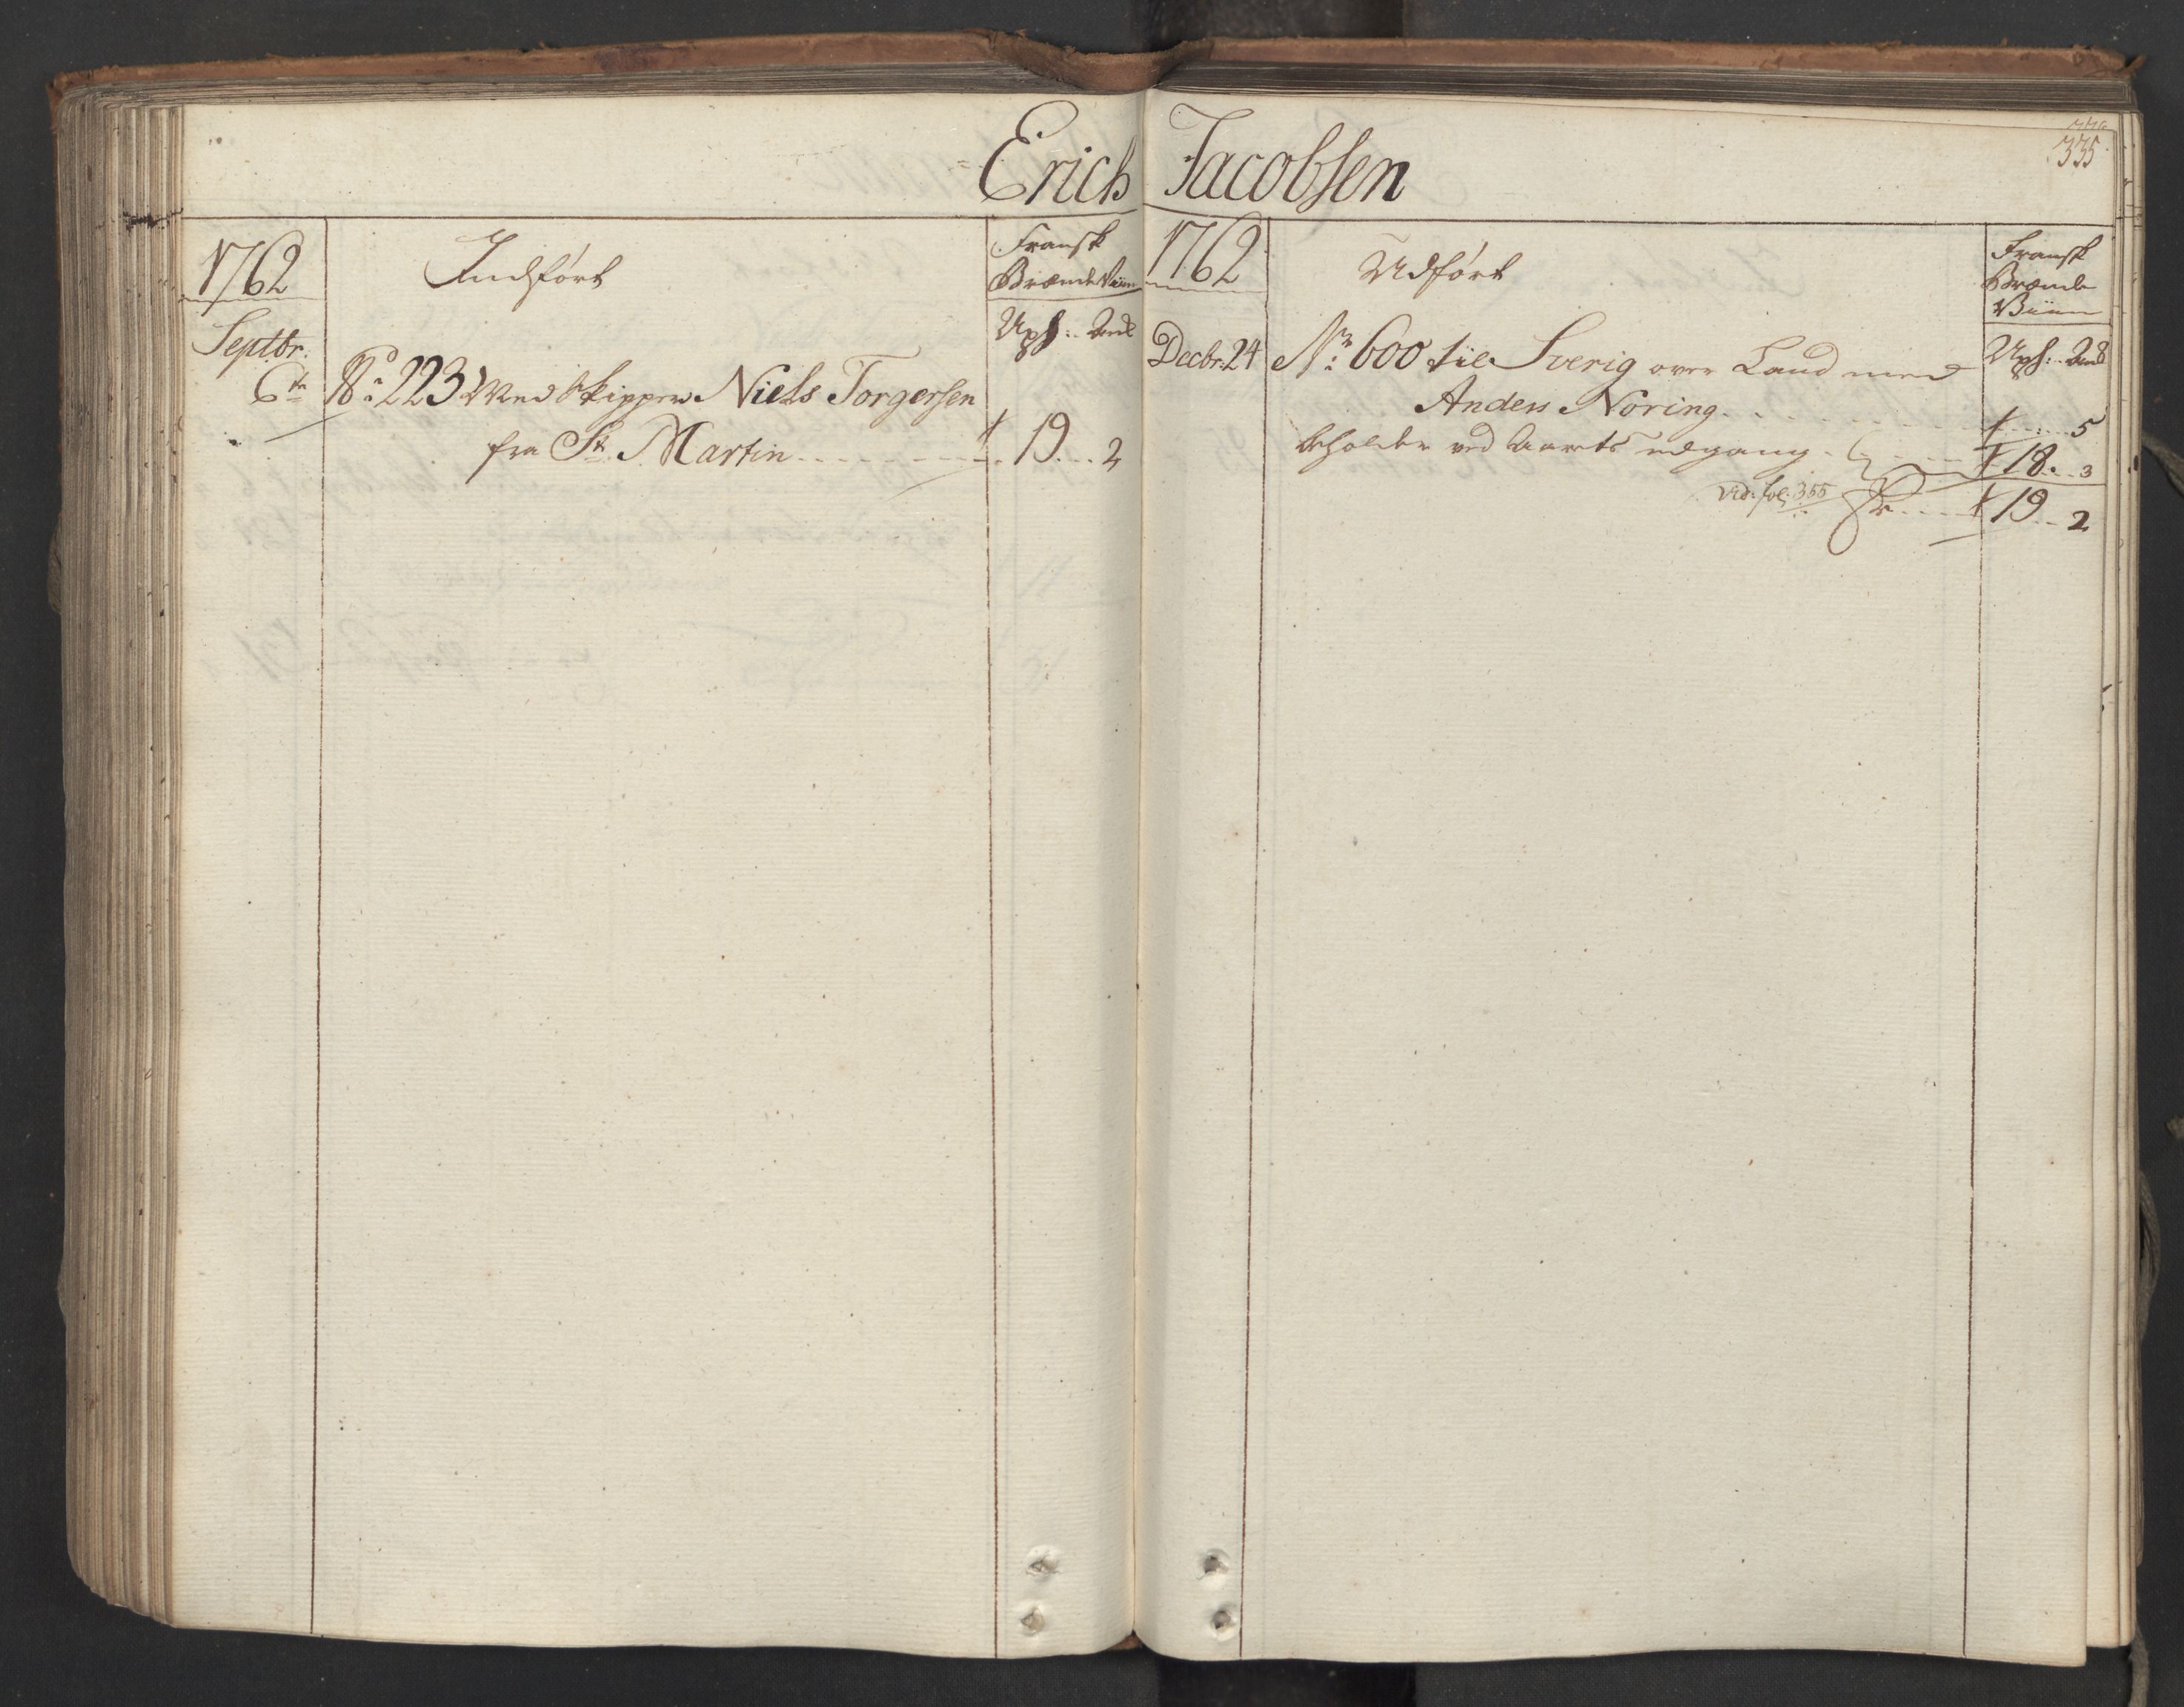 Erich Jacobsen
335
1762
Indført
Fransk
Brænde Viin
Oxh: Ank
Septbr:
6te No: 223 Med Skipper Niels Torgersen
fra St. Martin - - - - - - - 19 . . . 2
1762
Udført
Fransk
Brænde
Viin
Oxh: Ank
Decbr: 24 No: 600 til Sverig over Land med
Anders Noring - . . . . . . . . . . 5
beholden ved Aarets udgang - . . . . 18 . . . 3
vid: fol: 355 . . . . 19 . . 2